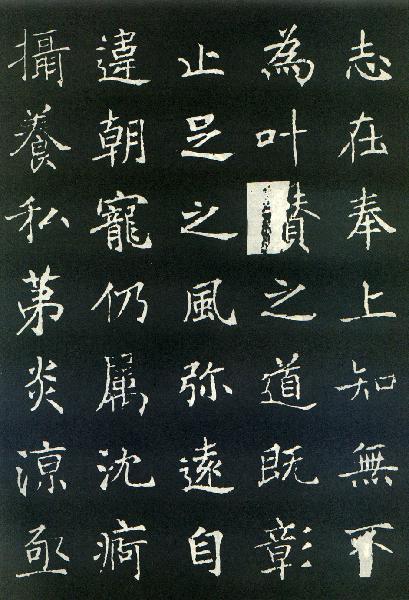 志在奉上知無不
為叶賛之道既彰
止足之風弥遠自
違朝寵仍属沈痾
攝養私苐炎涼亟